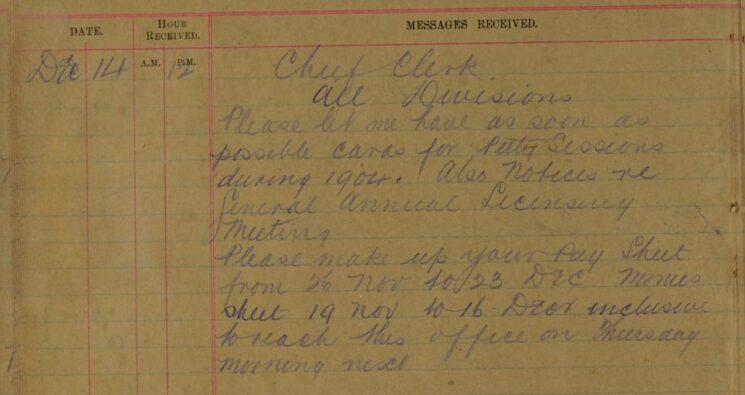 DATE. HOUR RECEIVED. MESSAGES RECEIVED.
A.M. P.M.
Dec 14 12 Chief Clerk
All Divisions
Please let me have as soon as
possible cards for Petty Sessions
during 1904. Also Notices re
General Annual Licensing
Meeting
Please make up your Pay Sheet
from 26 Nov to 23 Dec Monies
sheet 19 Nov to 16 Decr inclusive
to reach this office on Thursday
morning next